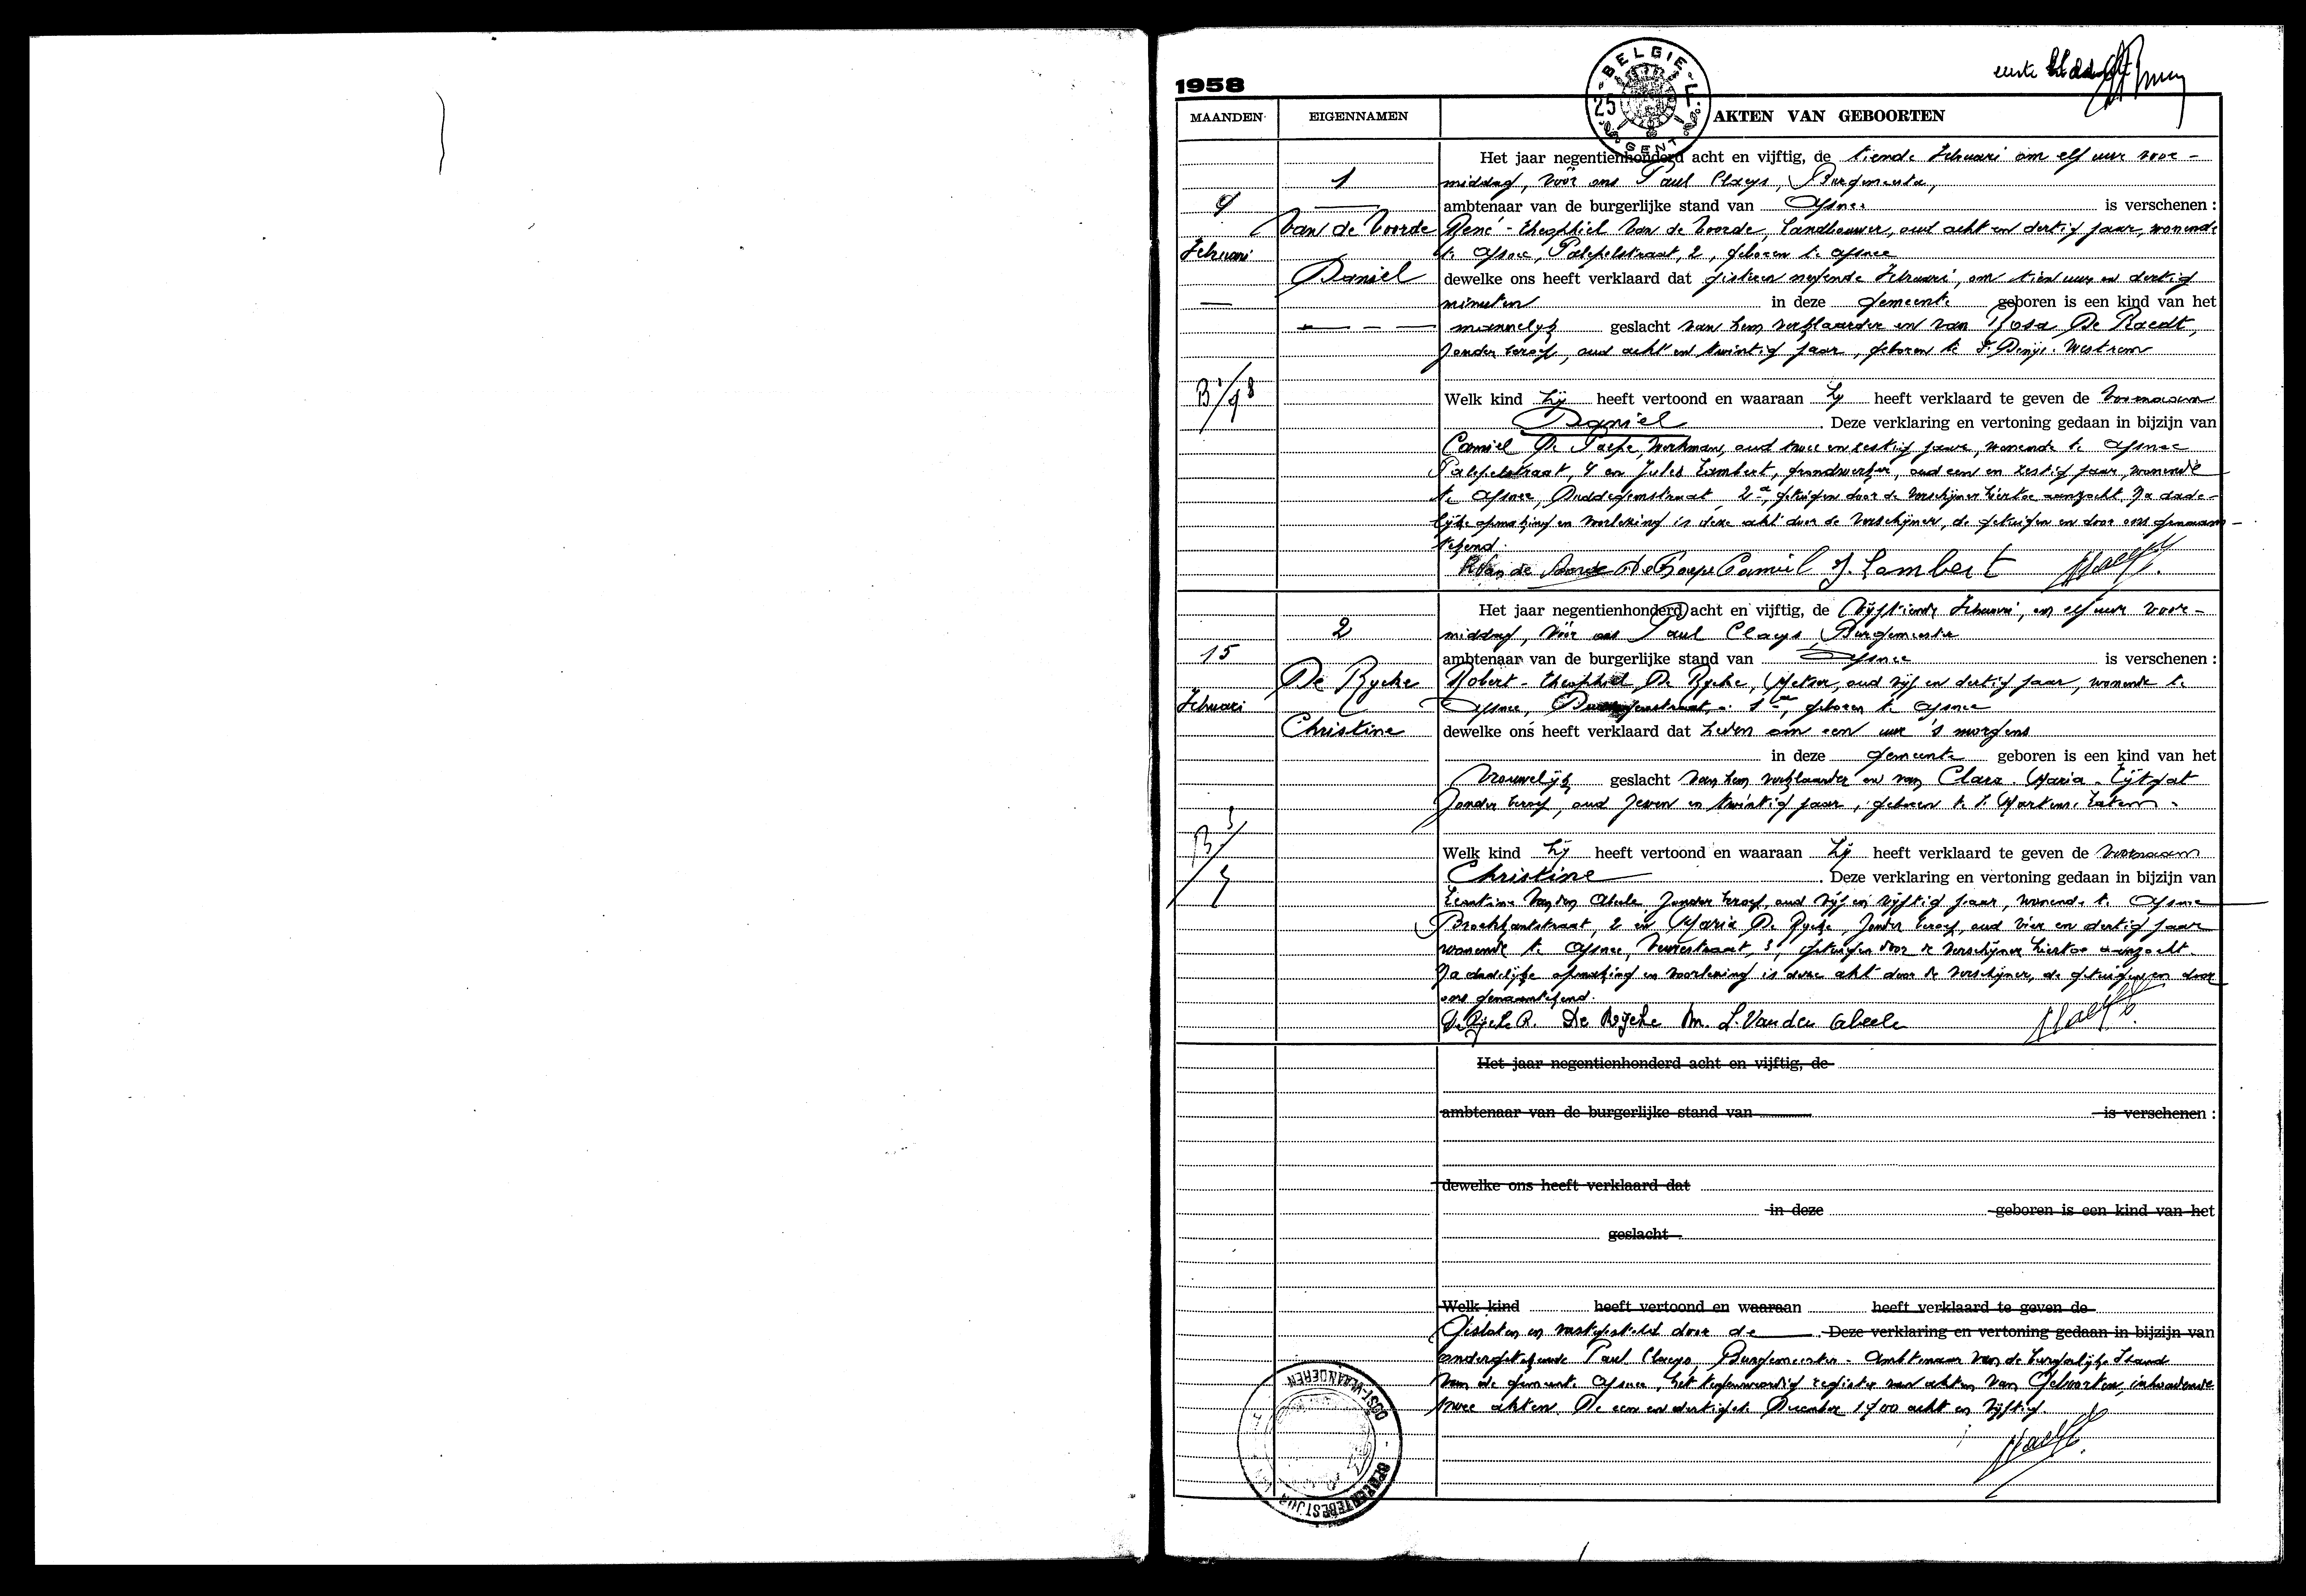 1958
eerste blad
BELGIE
25
GENT
MAANDEN
EIGENNAMEN
AKTEN VAN GEBOORTEN
9
Februari
1
Van de Voorde
Daniel
Het jaar negentienhonderd acht en vijftig, de tiende Februari om elf uur voor-
middag, vóór ons Paul Claeys, Burgmeester,
ambtenaar van de burgerlijke stand van Afsnee is verschenen :
René-Theophiel Van de Voorde, Landbouwer, oud acht en dertig jaar, wonende
te Afsnee, Palepelstraat, 2, geboren te Afsnee
dewelke ons heeft verklaard dat gisteren negende Februari, om tien uur en dertig
minuten in deze gemeente geboren is een kind van het
mannelijk geslacht van hem verklaarder en van Rosa De Raedt,
zonder beroep, oud acht en twintig jaar, geboren te St Denijs-Westrem
Welk kind hij heeft vertoond en waaraan hij heeft verklaard te geven de voornaam
Daniel. Deze verklaring en vertoning gedaan in bijzijn van
Camiel De Paepe, werkman, oud twee en zestig jaar, wonende te Afsnee
Palepelstraat, 4 en Jules Lambert, grondwerker, oud een en zestig jaar, wonende
te Afsnee, 2a, getuigen door de verschijner hiertoe aanzocht. Na dade-
lijke opmaking en voorlezing is deze akt door de verschijner, de getuigen en door ons genaam-
tekend.
R Van de Voorde De Paepe Camiel J. Lambert
15
Februari
2
De Rycke
Christine
Het jaar negentienhonderd acht en vijftig, de vijftiende Februari, om elf uur voor-
middag, vóór ons Paul Claeys, Burgemeester
ambtenaar van de burgerlijke stand van Afsnee is verschenen :
Robert-Theophiel De Rycke, Metser, oud vijf en dertig jaar, wonende te
Afsnee, geboren te Afsnee
dewelke ons heeft verklaard dat heden om een uur 's morgens
in deze gemeente geboren is een kind van het
vrouwelijk geslacht van hem verklaarder en van Clara-Maria Uijtgat
zonder beroep, oud zeven en twintig jaar, geboren te St Martens-Latem.
Welk kind hij heeft vertoond en waaraan hij heeft verklaard te geven de voornaam
Christine. Deze verklaring en vertoning gedaan in bijzijn van
Leontine Van den Abeele, zonder beroep, oud vijf en vijftig jaar, wonende te Afsnee
Broekkantstraat, 2 en Maria De Rycke, zonder beroep, oud vier en dertig jaar
wonende te Afsnee, 3, getuigen door de verschijner hiertoe aanzocht.
Na dadelijke opmaking en voorlezing is deze akt door de verschijner, de getuigen en door
ons genaamtekend.
De Rycke R. De Rycke M. L. Van den Abeele
Het jaar negentienhonderd acht en vijftig, de
ambtenaar van de burgerlijke stand van is verschenen :
dewelke ons heeft verklaard dat
in deze geboren is een kind van het
geslacht
Welk kind heeft vertoond en waaraan heeft verklaard te geven de
Gesloten en vastgesteld door de Deze verklaring en vertoning gedaan in bijzijn van
ondergetekende Paul Claeys, Burgemeester-Ambtenaar van de burgerlijke Stand
van de gemeente Afsnee, het tegenwoordig register van akten van Geboorten, inhoudende
twee akten. De een en dertigste December 1900 acht en vijftig.
OOST-VLAANDEREN
GEMEENTEBESTUUR